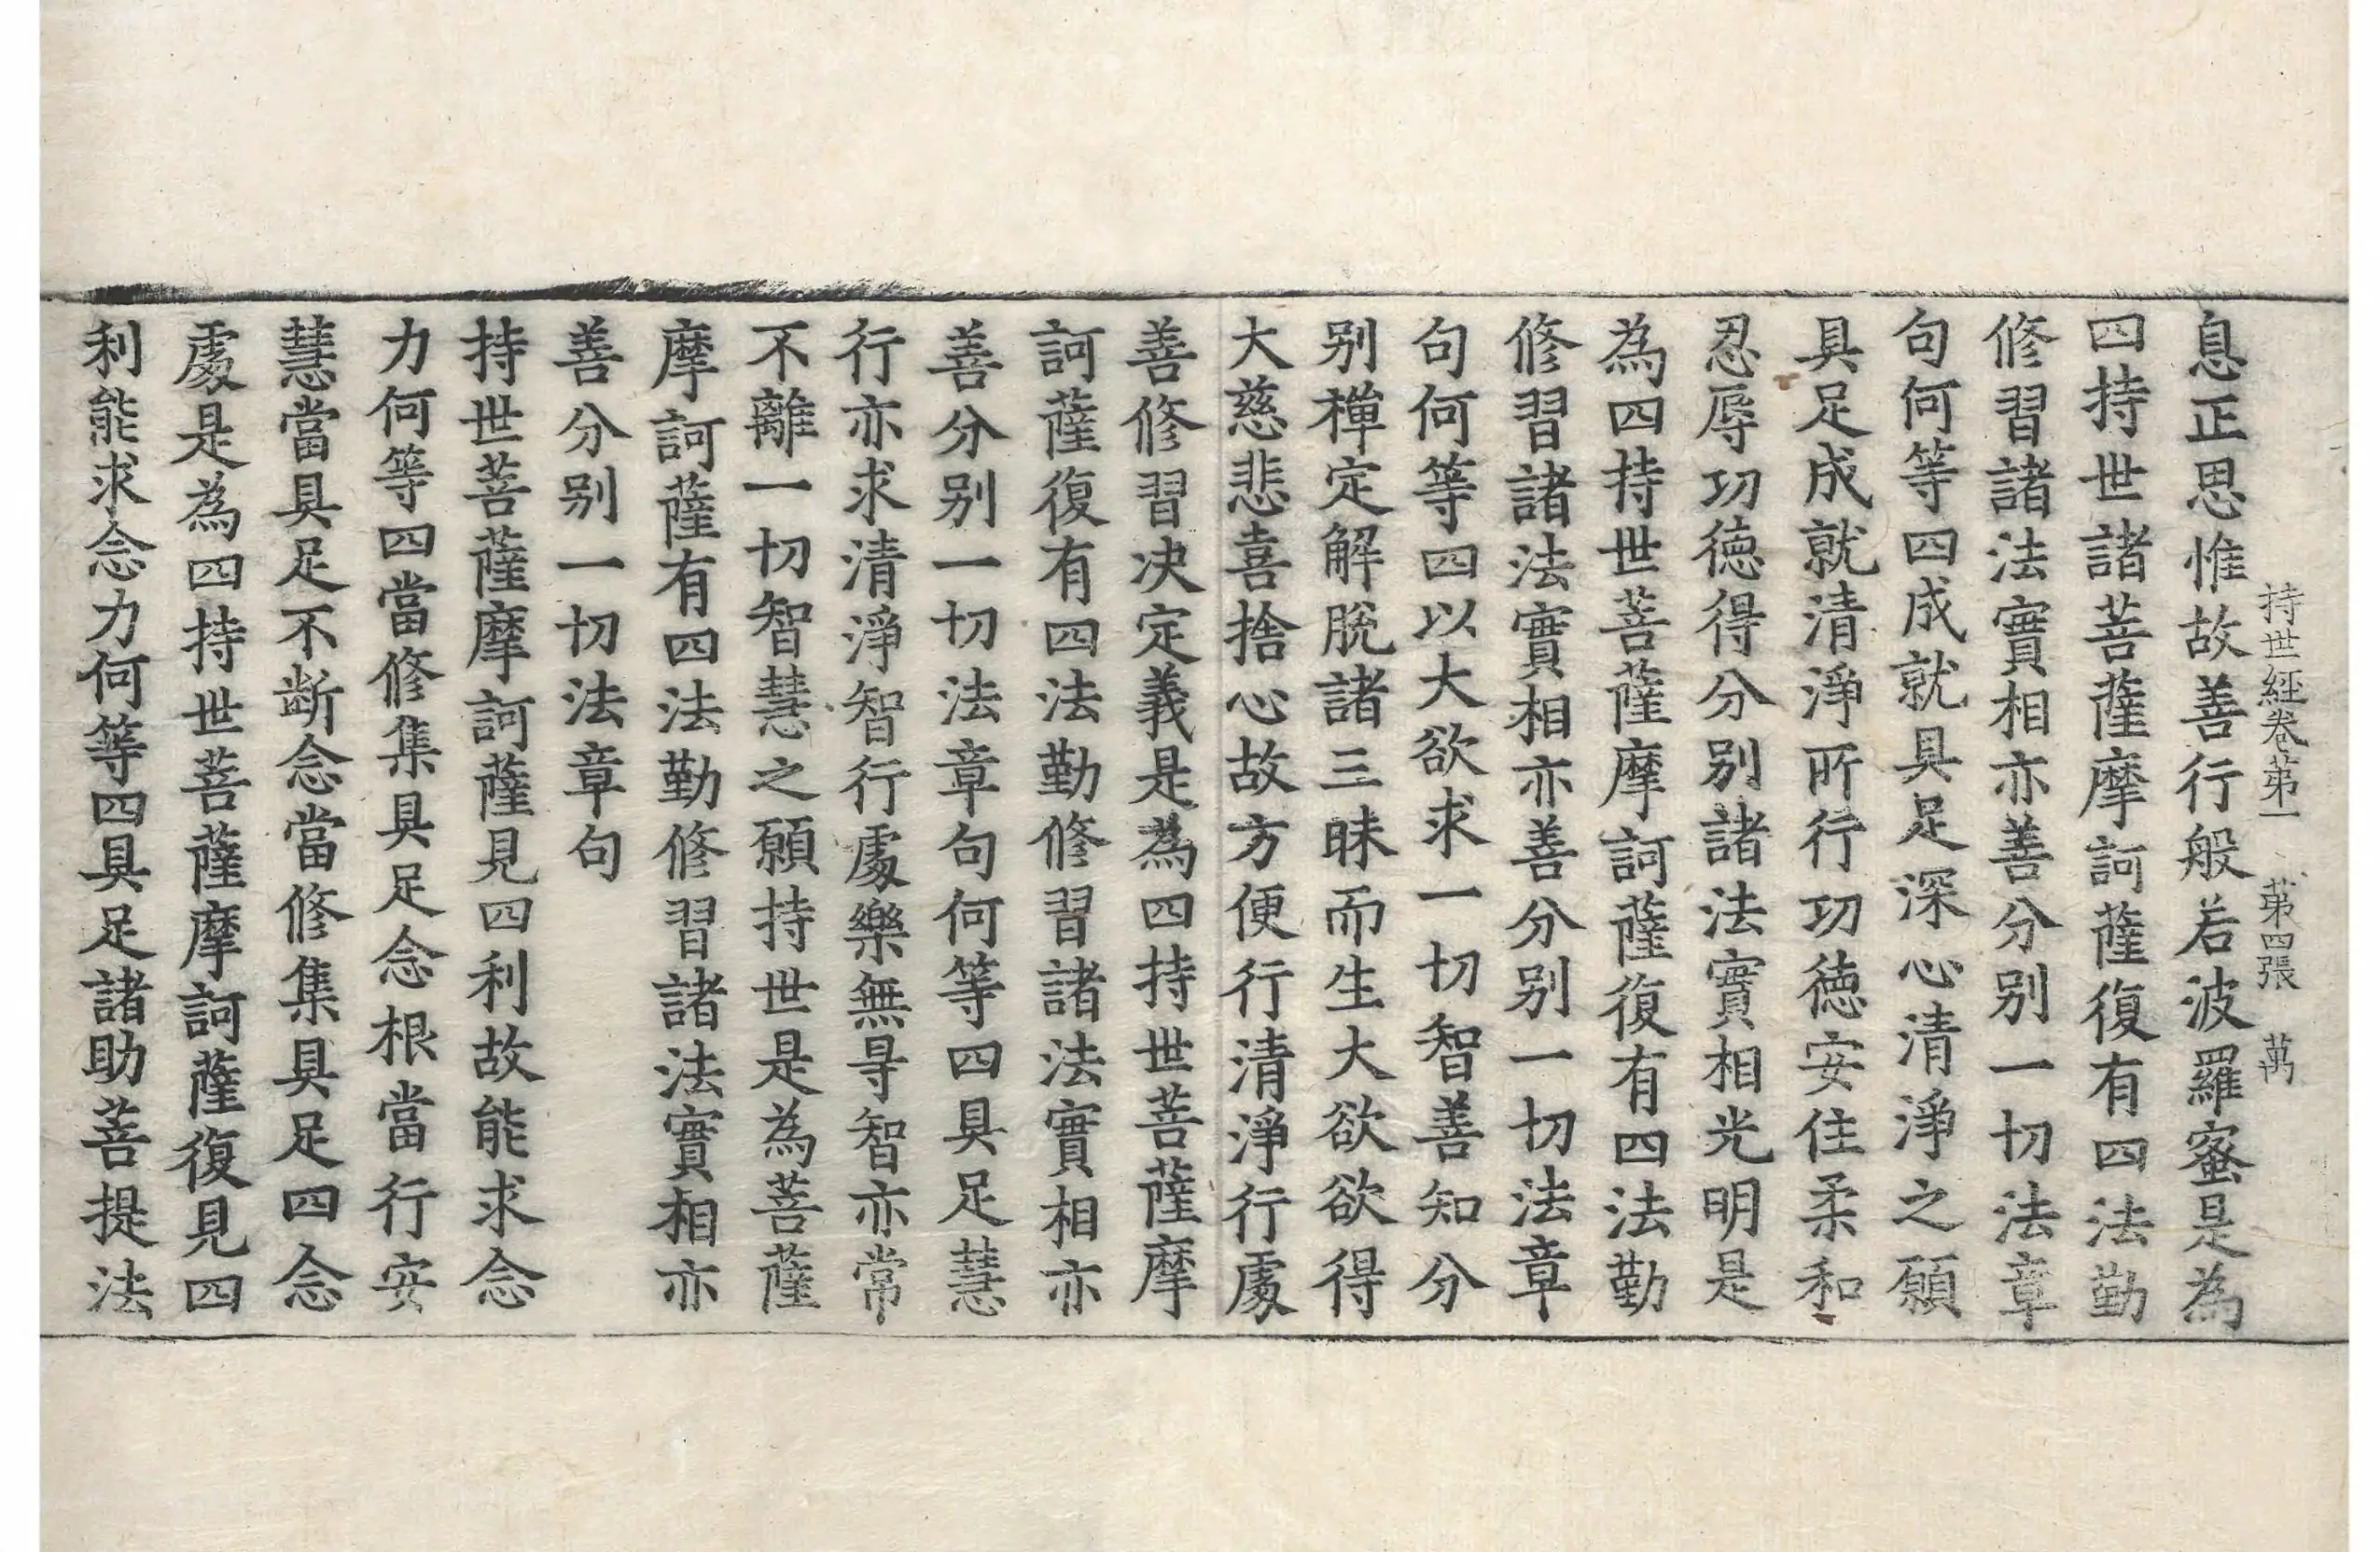 持世經卷第一　第四張　萬
息正思惟故善行般若波羅蜜是為
四持世諸菩薩摩訶薩復有四法勤
修習諸法實相亦善分別一切法章
句何等四成就具足深心清淨之願
具足成就清淨所行功德安住柔和
忍辱功德得分別諸法實相光明是
為四持世菩薩摩訶薩復有四法勤
修習諸法實相亦善分別一切法章
句何等四以大欲求一切智善知分
別禪定解脫諸三昧而生大欲欲得
大慈悲喜捨心故方便行清淨行處
善修習決定義是為四持世菩薩摩
訶薩復有四法勤修習諸法實相亦
善分別一切法章句何等四具足慧
行亦求清淨智行處樂無㝵智亦常
不離一切智慧之願持世是為菩薩
摩訶薩有四法勤修習諸法實相亦
善分別一切法章句
持世菩薩摩訶薩見四利故能求念
力何等四當修集具足念根當行安
慧當具足不斷念當修集具足四念
處是為四持世菩薩摩訶薩復見四
利能求念力何等四具足諸助菩提法